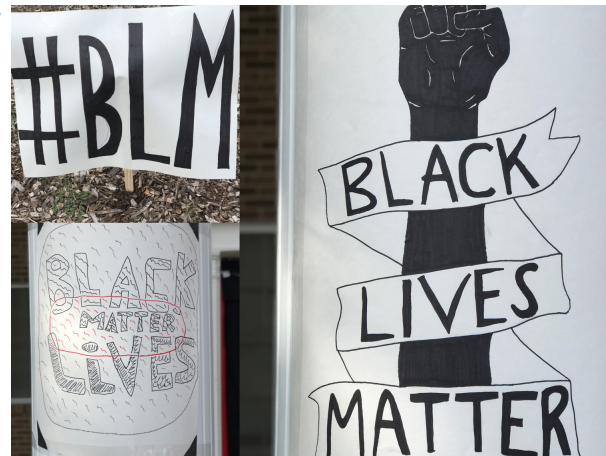 #BLM
BLACK
MATTER
LiVES
BLACK
LIVES
MATTER